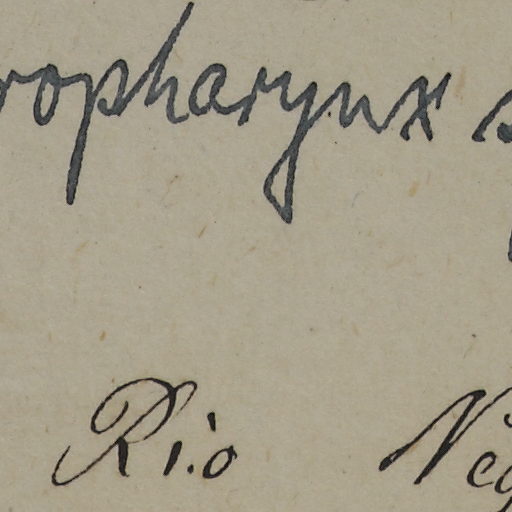 ropharynx s
Rio Neg